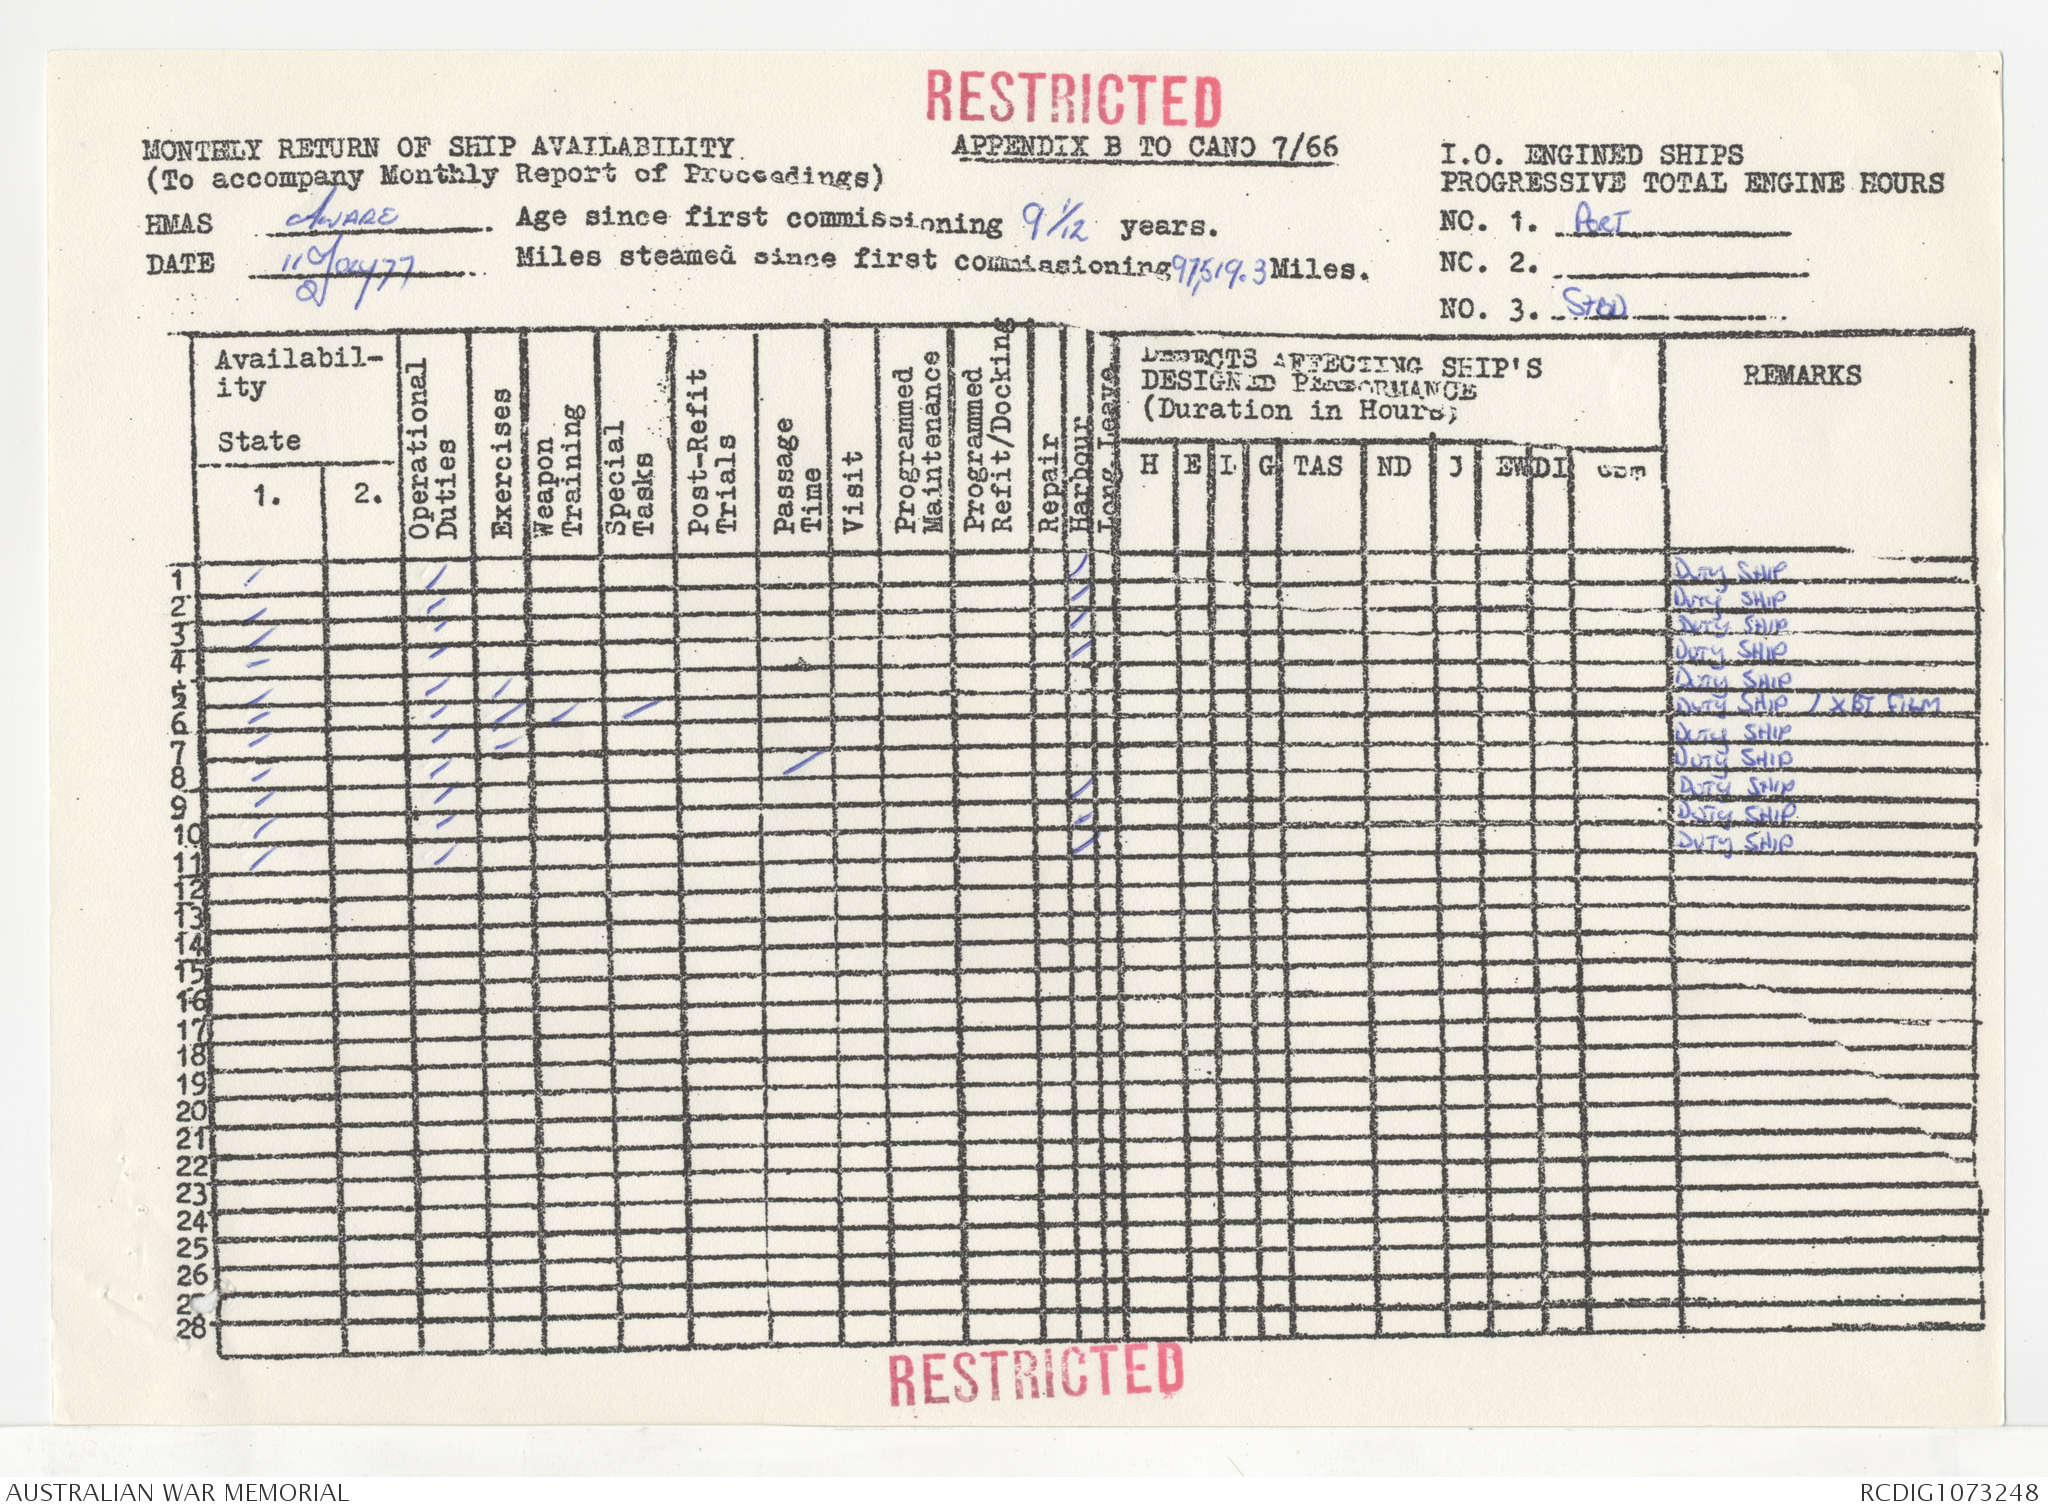 RESTRICTED
MONTHLY RETURN OF SHIP AVAILABILITY
APPENDIX B TO CANO 7/66
(To accompany Monthly Report of Proceedings)
I.O. ENGINED SHIPS
PROGRESSIVE TOTAL ENGINE HOURS
HMAS AWARE. Age since first commissioning 9 1/12 years.
NO. 1. PORT
DATE 11 77. Miles steamed since first commissioning 97,519.3 Miles.
NO. 2.
NO. 3. STBD
Availabil-
ity
State
1. 2.
Operational Duties
Exercises
Weapon Training
Special Tasks
Post-Refit Trials
Passage Time
Visit
Programmed Maintenance
Programmed Refit/Docking
Repair
Harbour
Long Leave
DEFECTS AFFECTING SHIP'S
DESIGNED PERFORMANCE
(Duration in Hours)
H E L G TAS ND J EW DI
REMARKS
1 / / / DUTY SHIP
2 / / / DUTY SHIP
3 / / / DUTY SHIP
4 / / / DUTY SHIP
5 / / / DUTY SHIP
6 / / / / / DUTY SHIP 1 XBT FILM
7 / / / DUTY SHIP
8 / / / DUTY SHIP
9 / / / DUTY SHIP
10 / / / DUTY SHIP
11 / / / DUTY SHIP
12
13
14
15
16
17
18
19
20
21
22
23
24
25
26
28
RESTRICTED
AUSTRALIAN WAR MEMORIAL
RCDIG1073248